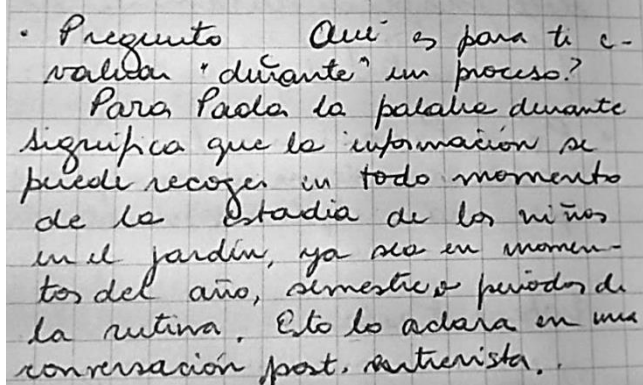 · Pregunto Qué es para ti e-
valuar "durante" un proceso?
Para Paola la palabra durante
significa que la información se
puede recoger en todo momento
de la estadia de los niños
en el jardín, ya sea en momen-
tos del año, semestre o periodos de
la rutina. Esto lo aclara en una
conversación post. entrevista.